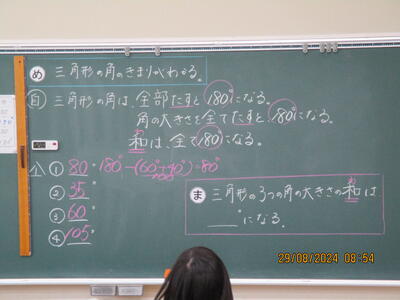 め 三角形の角のきまりがわかる。
自 三角形の角は、全部たすと180°になる。
角の大きさを全てたすと、180°になる。
和は、全て180°になる。
① 80° 180°-(60°+40°)=80°
100°
② 35°
③ 60°
④ 105°
ま 三角形の3つの角の大きさの和は
___°になる。
29/08/2024 08:54